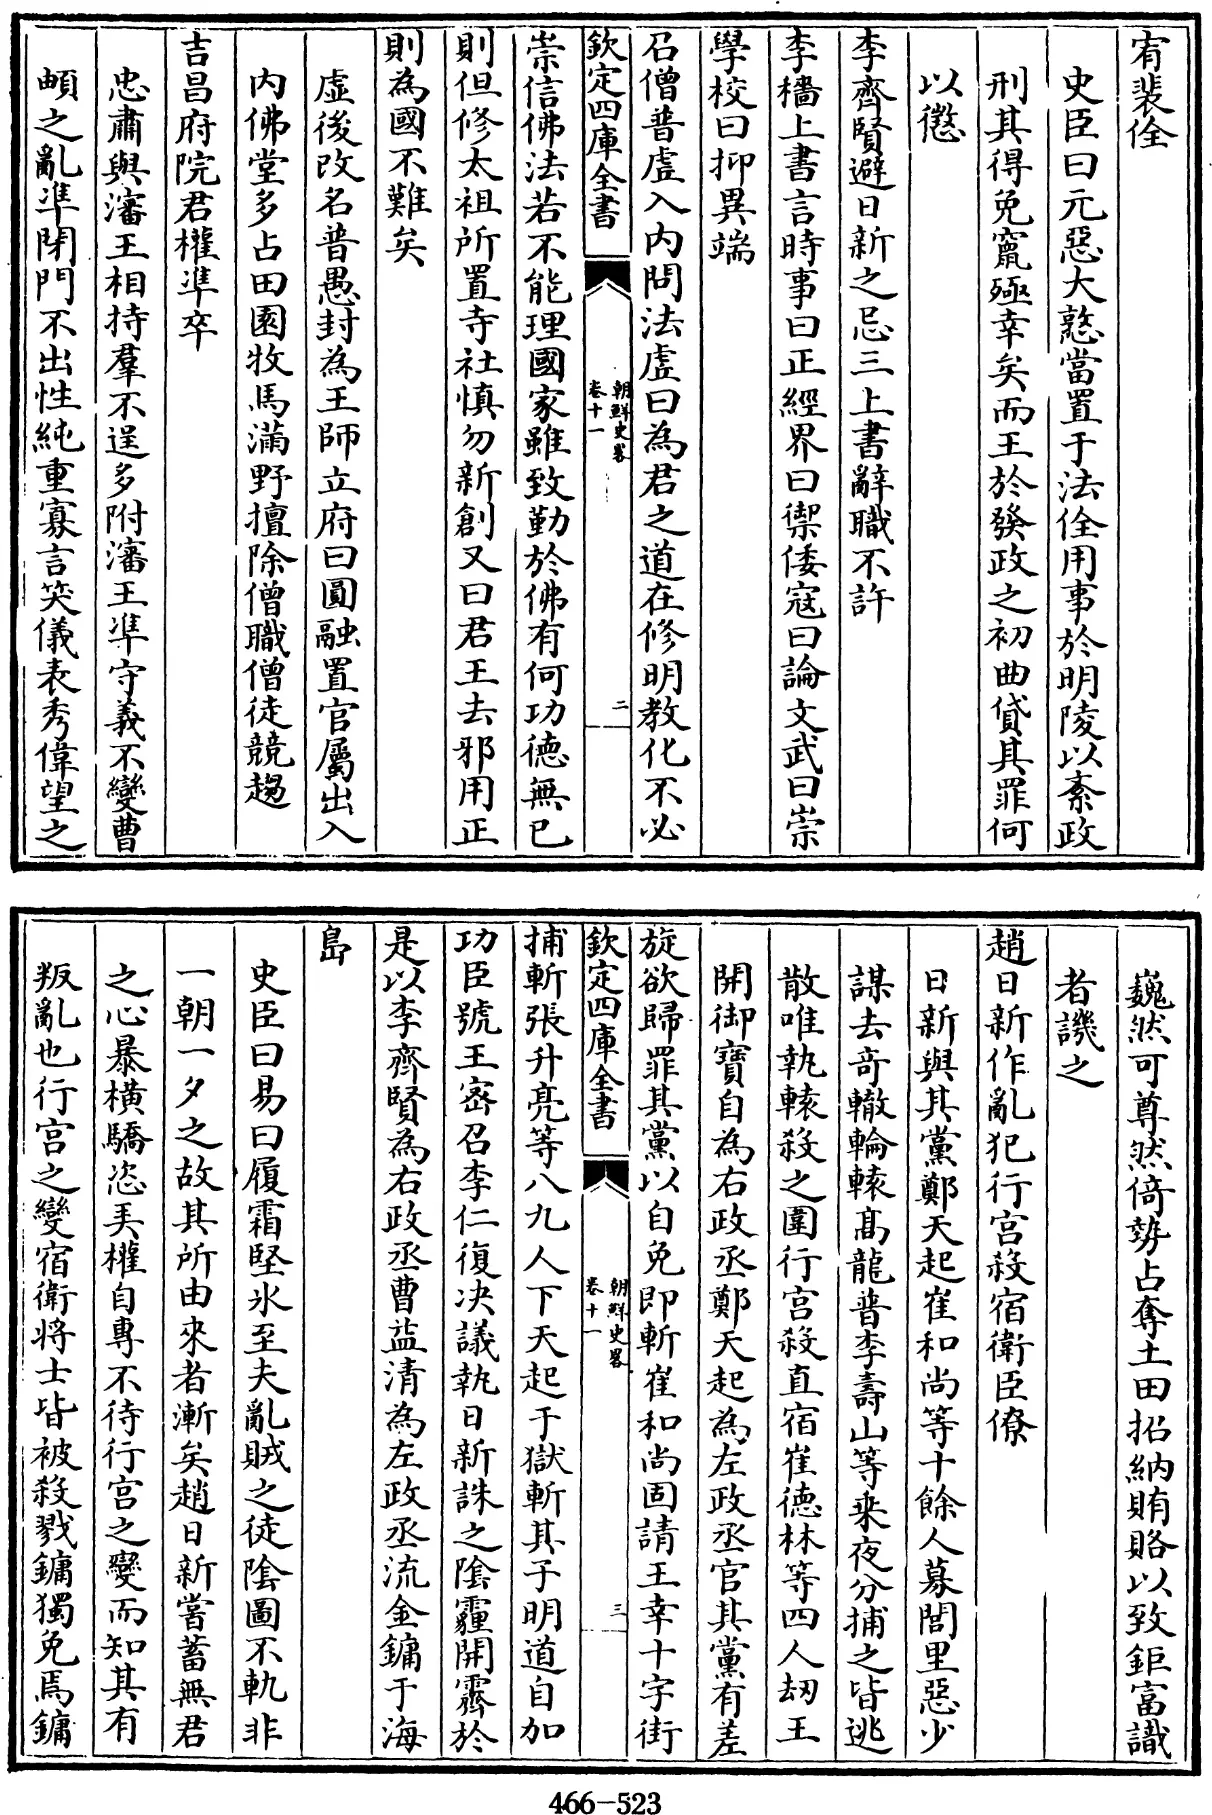 宥裴佺
史臣曰元惡大憝當置于法佺用事於明陵以紊政
刑其得免竄殛幸矣而王於發政之初曲貸其罪何
以懲
李齊賢避日新之忌三上書辭職不許
李穡上書言時事曰正經界曰禦倭寇曰論文武曰崇
學校曰抑異端
召僧普虛入內問法虛曰為君之道在修明教化不必
欽定四庫全書
朝鮮史畧
卷十一
二
崇信佛法若不能理國家雖致勤於佛有何功德無已
則但修太祖所置寺社慎勿新創又曰君王去邪用正
則為國不難矣
虛後改名普愚封為王師立府曰圓融置官屬出入
內佛堂多占田園牧馬滿野擅除僧職僧徒競趨
吉昌府院君權準卒
忠肅與瀋王相持羣不逞多附瀋王準守義不變曹
頔之亂準閉門不出性純重寡言笑儀表秀偉望之
巍然可尊然倚勢占奪土田招納賄賂以致鉅富識
者譏之
趙日新作亂犯行宮殺宿衛臣僚
日新與其黨鄭天起崔和尚等十餘人募閭里惡少
謀去竒轍輪轅髙龍普李壽山等來夜分捕之皆逃
散唯執轅殺之圍行宮殺直宿崔德林等四人刼王
開御寳自為右政丞鄭天起為左政丞官其黨有差
旋欲歸罪其黨以自免即斬崔和尚固請王幸十字街
欽定四庫全書
朝鮮史畧
卷十一
三
捕斬張升亮等八九人下天起于獄斬其子明道自加
功臣號王密召李仁復決議執日新誅之陰霾開霽於
是以李齊賢為右政丞曹益清為左政丞流金鏞于海
島
史臣曰易曰履霜堅氷至夫亂賊之徒陰圖不軌非
一朝一夕之故其所由來者漸矣趙日新嘗蓄無君
之心暴橫驕恣美權自專不待行宮之變而知其有
叛亂也行宮之變宿衛將士皆被殺戮鏞獨免焉鏞
466-523